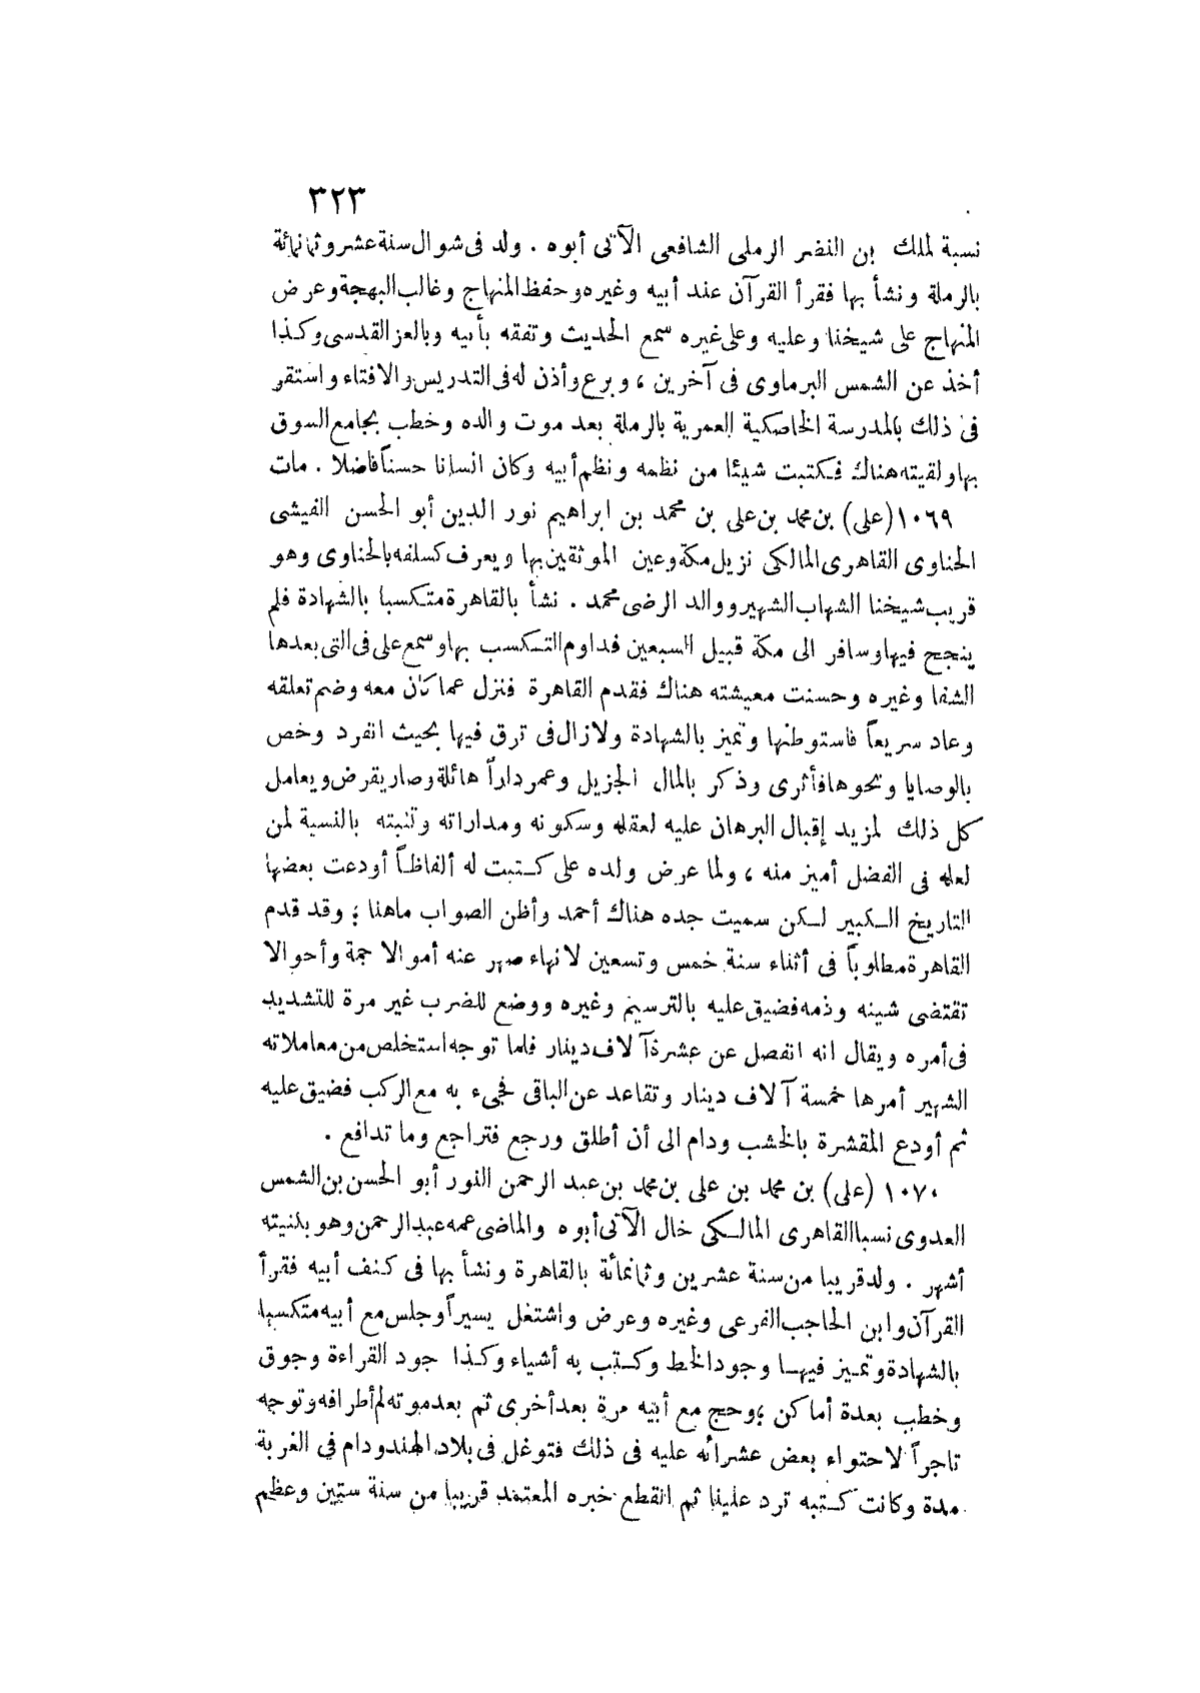 ٣٢٣
نسبة لملك بن النضر الرملى الشافعى الآتى أبوه . ولد فى شوال سنة عشر وثمانمائة
بالرملة ونشأ بها فقرأ القرآن عند أبيه وغيره وحفظ المنهاج وغالب البهجة وعرض
المنهاج على شيخنا وعليه وعلى غيره سمع الحديث وتفقه بأبيه وبالعز القدسى وكذا
أخذ عن الشمس البرماوى فى آخرين ، وبرع وأذن له فى التدريس والافتاء واستقر
فى ذلك بالمدرسة الخاصكية العمرية بالرملة بعد موت والده وخطب بجامع السوق
بها ولقيته هناك فكتبت شيئا من نظمه ونظم أبيه وكان انسانا حسناً فاضلا . مات
١٠٦٩ (على) بن محمد بن على بن محمد بن ابراهيم نور الدين أبو الحسن الفيشى
الحناوى القاهرى المالكى نزيل مكة وعين الموثقين بها ويعرف كسلفه بالحناوى وهو
قريب شيخنا الشهاب الشهير ووالد الرضى محمد . نشأ بالقاهرة متكسبا بالشهادة فلم
ينجح فيها وسافر الى مكة قبيل السبعين فداوم التكسب بها وسمع على فى التى بعدها
الشفا وغيره وحسنت معيشته هناك فقدم القاهرة فنزل عما كان معه وضم تعلقه
وعاد سريعاً فاستوطنها وتميز بالشهادة ولا زال فى ترق فيها بحيث انفرد وخص
بالوصايا ونحوها فأثرى وذكر بالمال الجزيل وعمر داراً هائلة وصار يقرض ويعامل
كل ذلك لمزيد إقبال البرهان عليه لعقله وسكونه ومداراته وتثبته بالنسبة لمن
لعله فى الفضل أميز منه ، ولما عرض ولده على كتبت له ألفاظاً أودعت بعضها
التاريخ الكبير لكن سميت جده هناك أحمد وأظن الصواب ما هنا ؛ وقد قدم
القاهرة مطلوباً فى أثناء سنة خمس وتسعين لانهاء صهر عنه أموالا جمة وأحوالا
تقتضى شينه وذمه فضيق عليه بالترسيم وغيره ووضع للضرب غير مرة للتشديد
فى أمره ويقال انه انفصل عن عشرة آلاف دينار فلما توجه استخلص من معاملاته
الشهير أمرها خمسة آلاف دينار وتقاعد عن الباقى فجىء به مع الركب فضيق عليه
ثم أودع المقشرة بالخشب ودام الى أن أطلق ورجع فتراجع وما تدافع .
١٠٧٠ (على) بن محمد بن على بن محمد بن عبد الرحمن النور أبو الحسن بن الشمس
العدوى نسبا القاهرى المالكى خال الآتى أبوه والماضى عمه عبد الرحمن وهو بكنيته
أشهر . ولد قريبا من سنة عشرين وثمانمائة بالقاهرة ونشأ بها فى كنف أبيه فقرأ
القرآن وابن الحاجب الفرعى وغيره وعرض واشتغل يسيراً وجلس مع أبيه متكسبا
بالشهادة وتميز فيها وجود الخط وكتب به أشياء وكذا جود القراءة وجوق
وخطب بعدة أماكن ؛ وحج مع أبيه مرة بعد أخرى ثم بعد موته لم أطرافه وتوجه
تاجراً لاحتواء بعض عشرائه عليه فى ذلك فتوغل فى بلاد الهند ودام في الغربة
مدة وكانت كتبه ترد علينا ثم انقطع خبره المعتمد قريبا من سنة ستين وعظم